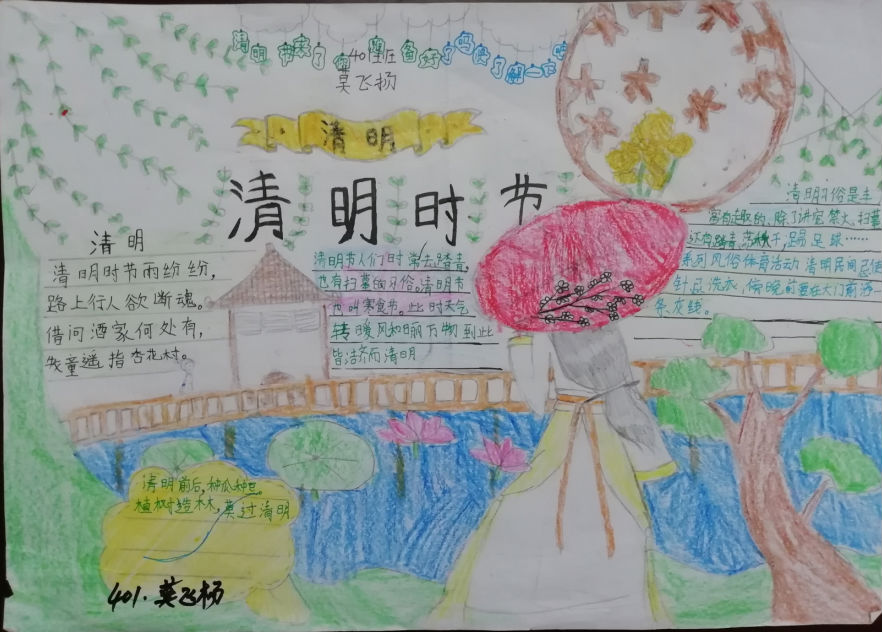 清明节来了你准备好了吗快了解一下吧
401班
莫飞扬
清明
清明时节
清明
清明时节雨纷纷,
路上行人欲断魂。
借问酒家何处有,
牧童遥指杏花村。
清明节人们时常去踏青,
也有扫墓的习俗。清明节
也叫寒食节。此时天气
转暖风和日丽万物到此
皆洁齐而清明
清明习俗是丰
富有趣的,除了讲究禁火、扫墓
还有踏青、荡秋千、蹋足球……
系列风俗体育活动 清明民间忌使
针,忌洗衣
条灰线。
清明前后,种瓜种豆。
植树造林,莫过清明
401.莫飞扬